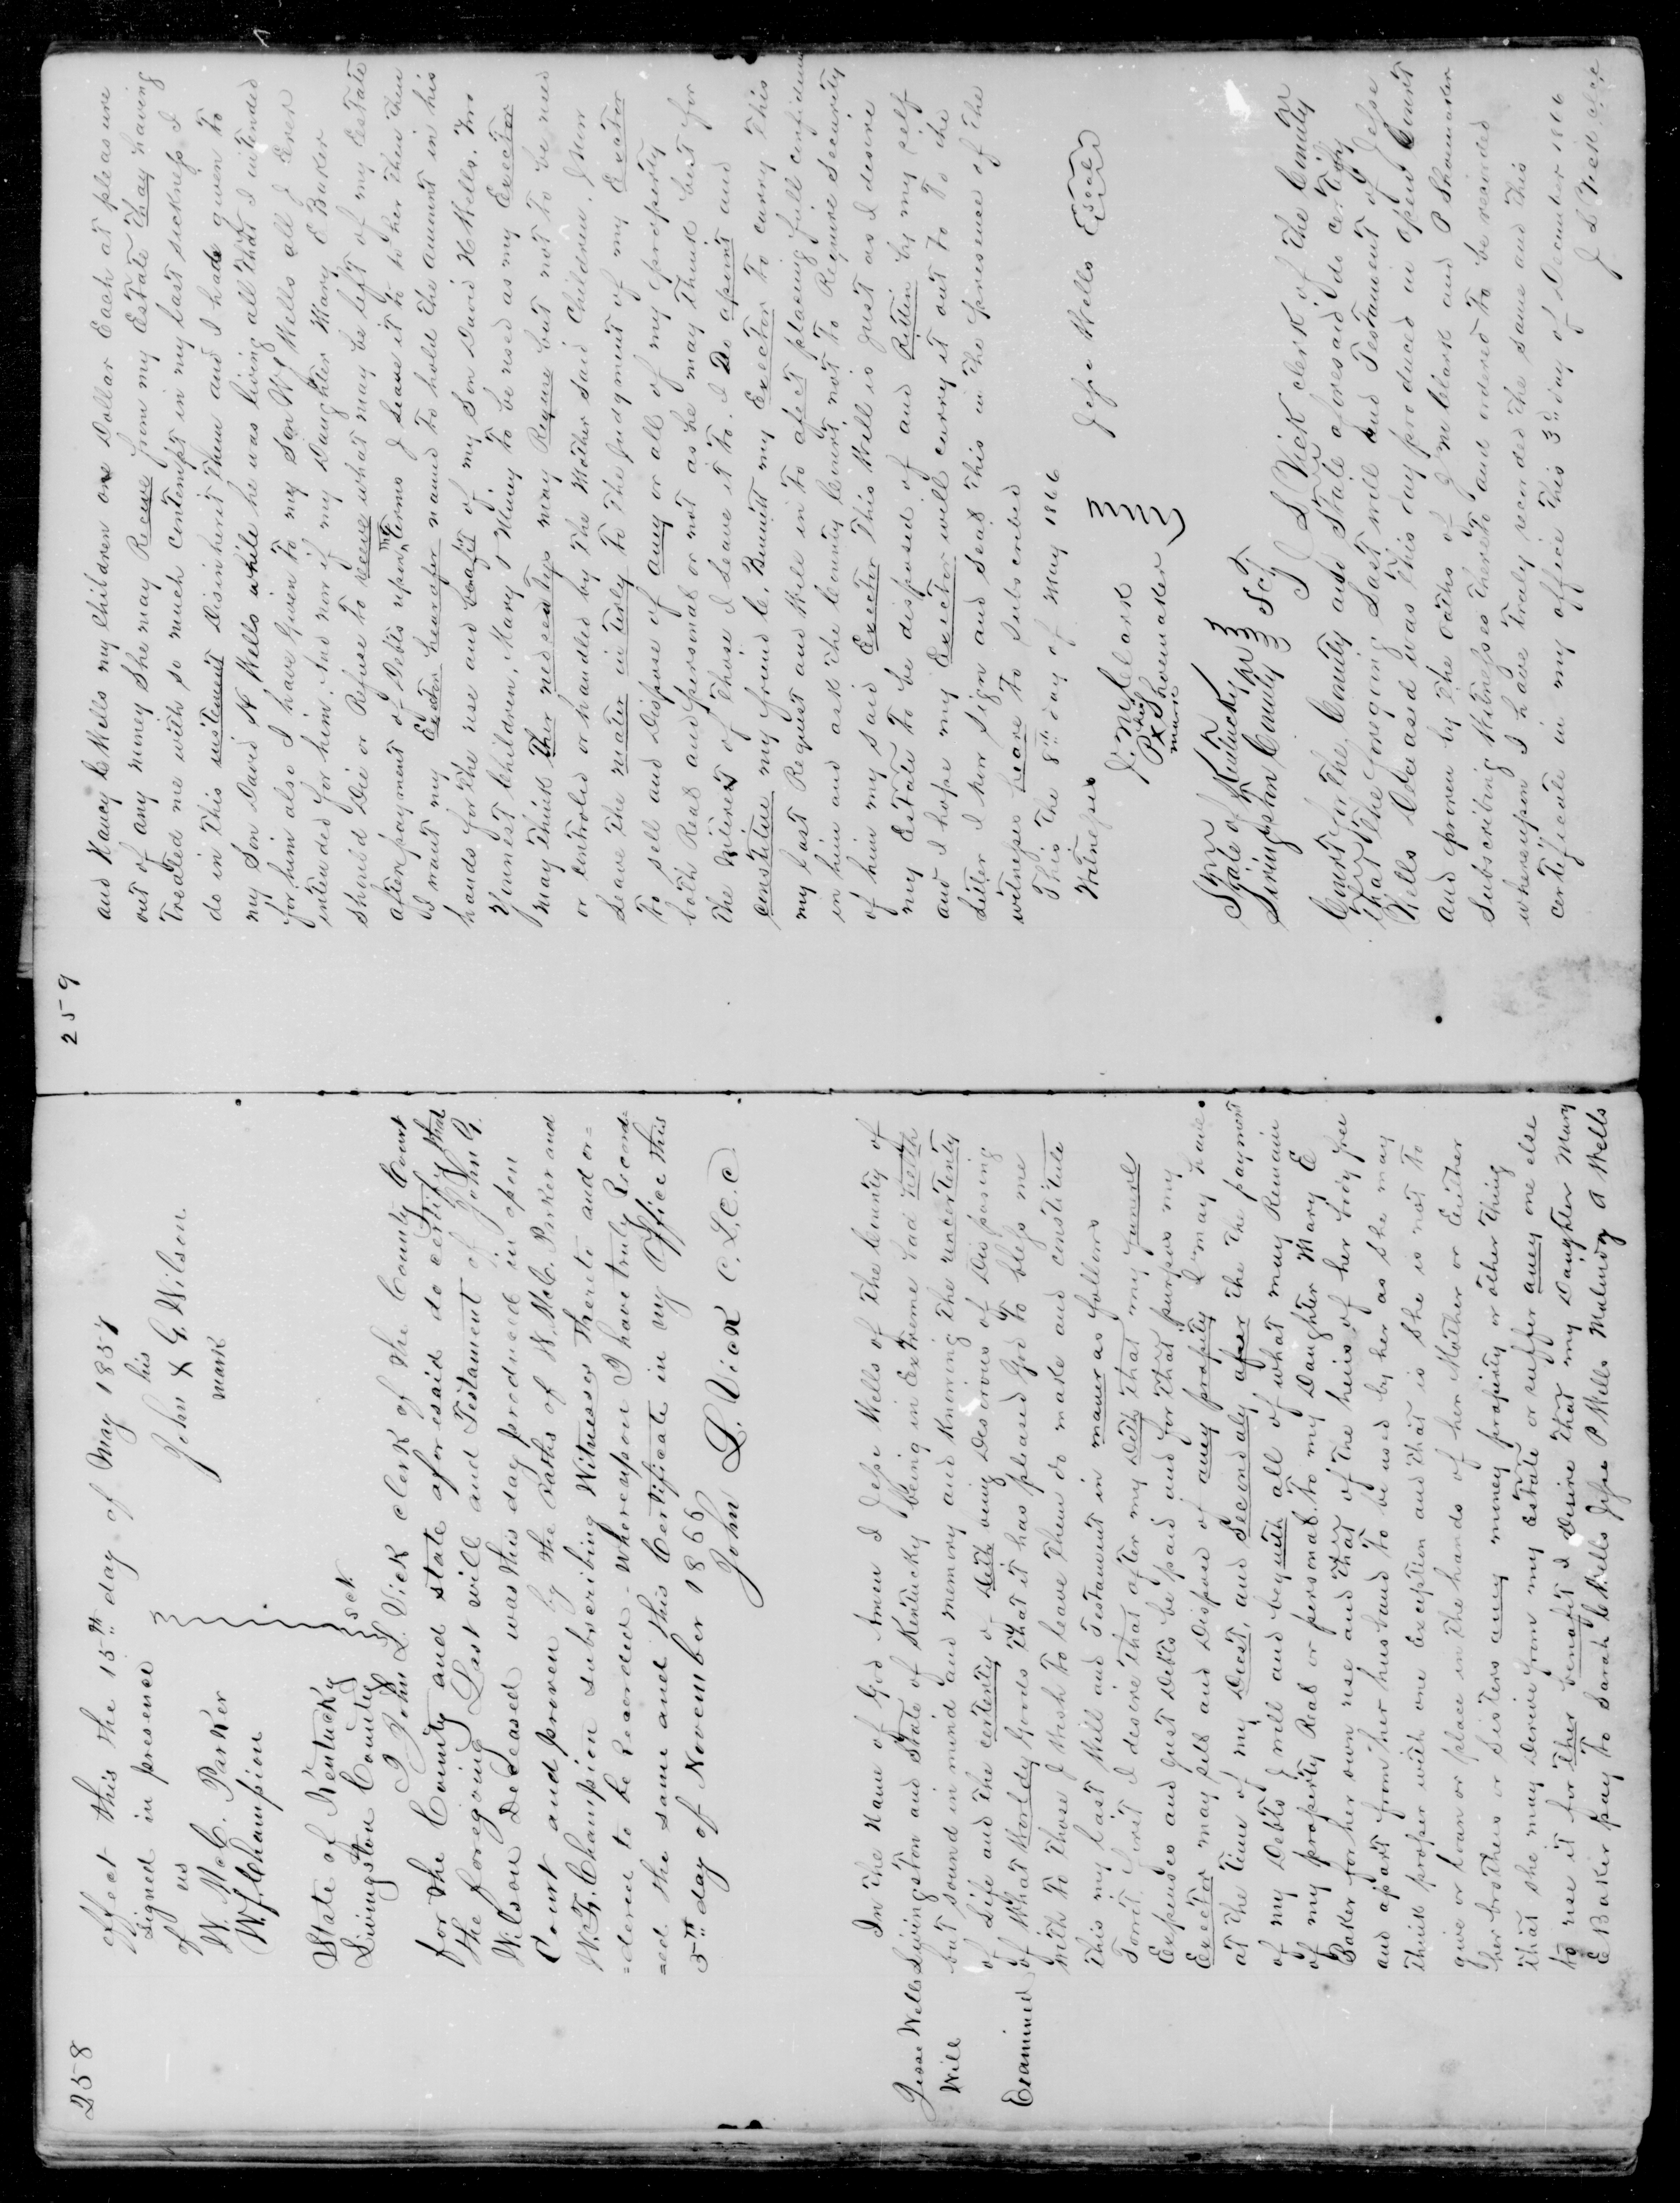 258
effect this the 15th day of May 1857
signed in presence
of us
his
John X G. Wilson
mark
W. McC. Parker
W. F. Champion
State of Kentucky
Livingston County Sct.
I John L. Vick clerk of the County Court
for the County and state aforesaid do certify that
the foregoing Last will and Testament of John G.
Wilson Deceased was this day produced in open
Court and proven by the Oaths of W. McC. Parker and
W. F. Champion subscribing Witnesses thereto and or=
=dered to be Recorded - Whereupon I have truly Record=
=ed the same and this Certificate in my Office this
5th day of November 1866
John L. Vick C.L.C.C
Jesse Wells
Will
Examined
In the Name of God Amen I Jesse Wells of the County of
Livingston and State of Kentucky being in Extreme bad helth
but sound in mind and memory and knowing the uncertenty
of Life and the certenty of deth being Desirous of Disposing
of What Worldy Goods that it has pleased God to bless me
with to those I wish to leave them do make and constitute
this my last Will and Testament in maner as follows
I desire that after my deth that my funeral
Expenses and just Debts be paid and for that purpos my
Executor may sell and Dispose of any propity I may have
at the time of my Diest, and Secondaly after the payment
of my Debts I will and bequith all of what may Remain
of my property Real or personal to my Daughter Mary E
Baker for her own use and that of the heirs of her body free
and apart from her husband to be used by her as she may
think proper with one Exception and that is she is not to
give or loan or place in the hands of her Mother or Either
her brothers or sisters any money property or other thing
that she may derive from my Estate or suffer any one else
to use it for ther benefit I Desire that my Daughter Mary
E Baker pay to Sarah C Wells Jesse P Wells Malindy A Wells
259
and Nancy C Wells my children one Dollar Each at pleasure
out of any money She may Receve from my Estate thay having
treated me with so much contempt in my last sickness I
do in this instrument Disinherit them and I have given to
my Son David H Wells while he was living all that I intended
for him also I have Given to my Son W J Wells all I Ever
intended for him. And now if my Daughter Mary E Baker
should Die or Refuse to receve what may be left of my Estate
after payment of Debts upon the terms I leave it to her then then
I want my Exector hearafer named to hold the amount in his
hands for the use and benafit of my Son David H Wells, two
Younest children, Mary & Muny to be used as my Exector
may think ther nessesitys may Requre but not to be used
or controled or handled by the Mother Said Children. I hear
Leave the mater in tirly to the Judgment of my Exector
to sell and Dispose of any or all of my property
both Real and personal or not as he may think best for
the interest of those I leave it to. I Do apoint and
constitue my friend C. Bennett my Exector to carry this
my last Request and Will in to afect plasing full confidence
in him and ask the County Court not to Require Security
of him my said Exector this Will is just as I desire
my Estate to be disposed of and Ritten by my self
and I hope my Exector will carry it out to to the
Leter I her Sign and Seal this in the presence of the
witnesses heare to subscribed
This the 8th day of May 1866
Witnesses
Jesse Wells Seal
J. M. Clark
his
P X Shoemaker
mark
State of Kentucky
Livingston County Sct
I J L Vick clerk of the County
Court for the County and State aforesaid do certify
that the forgoing Last will and Testament of Jesse
Wells Deceased was this day produced in open Court
and proven by the oaths of J M Clark and P Shoemaker
Subscribing Witnesses thereto and ordered to be recorded
whereupon I have truly recorded the same and this
certificate in my office this 3rd day of December 1866
J L Vick clk